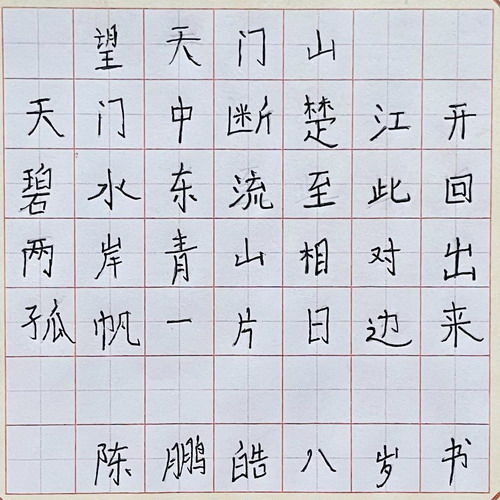 望天门山
天门中断楚江开
碧水东流至此回
两岸青山相对出
孤帆一片日边来
陈鹏皓八岁书